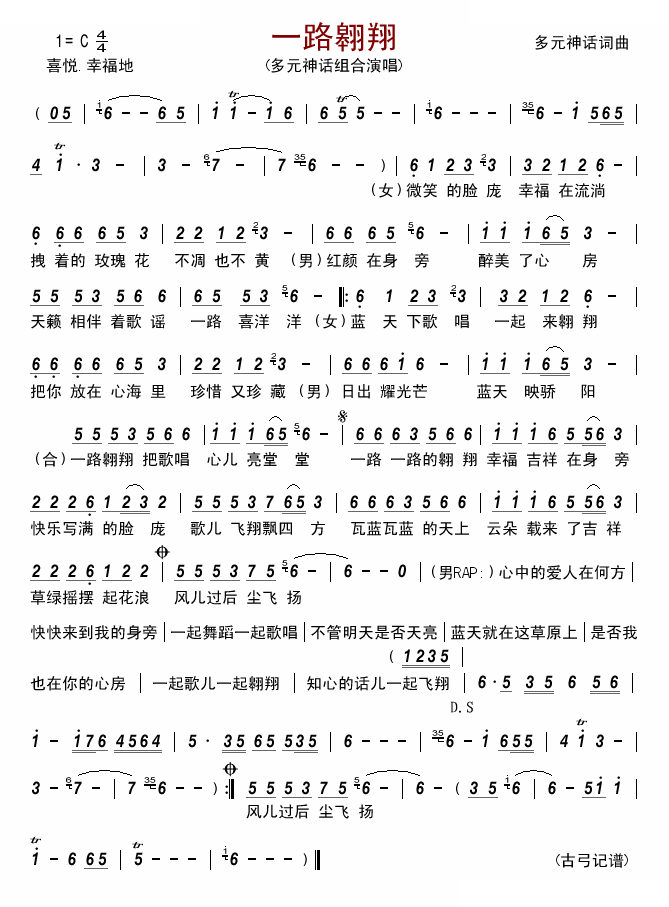 一路翱翔
1= C 4/4
多元神话词曲
喜悦.幸福地
(多元神话组合演唱)
( 0 5 | 6 - - 6 5 | 1 1 - 1 6 | 6 5 5 - - | 6 - - - | 6 - 1 5 6 5 |
4 1 · 3 - | 3 - 7 - | 7 6 - - ) | 6 1 2 3 3 | 3 2 1 2 6 - |
(女)微笑 的脸 庞 幸福 在流淌
6 6 6 6 5 3 | 2 2 1 2 3 - | 6 6 6 5 6 - | 1 1 1 6 5 3 - |
拽 着的 玫瑰 花 不凋 也不 黄 (男)红颜 在身 旁 醉美 了心 房
5 5 5 3 5 6 6 | 6 5 5 3 6 - |: 6 1 2 3 3 | 3 2 1 2 6 - |
天籁 相伴 着歌 谣 一路 喜洋 洋 (女)蓝 天 下歌 唱 一起 来翱 翔
6 6 6 6 6 5 3 | 2 2 1 2 3 - | 6 6 6 1 6 - | 1 1 1 6 5 3 - |
把你 放在 心海 里 珍惜 又珍 藏 (男) 日出 耀光芒 蓝天 映骄 阳
5 5 5 3 5 6 6 | 1 1 1 6 5 6 - | 6 6 6 3 5 6 6 | 1 1 1 6 5 5 6 3 |
(合)一路翱翔 把歌唱 心儿 亮堂 堂 一路 一路的翱 翔 幸福 吉祥 在身 旁
2 2 2 6 1 2 3 2 | 5 5 5 3 7 6 5 3 | 6 6 6 3 5 6 6 | 1 1 1 6 5 5 6 3 |
快乐写满 的脸 庞 歌儿 飞翔飘四 方 瓦蓝瓦蓝 的天上 云朵 载来 了吉 祥
2 2 2 6 1 2 2 | 5 5 5 3 7 5 6 - | 6 - - 0 | (男RAP:)心中的爱人在何方|
草绿摇摆 起花浪 风儿过后 尘飞 扬
快快来到我的身旁 | 一起舞蹈一起歌唱 | 不管明天是否天亮 | 蓝天就在这草原上 | 是否我
( 1 2 3 5 |
也在你的心房 | 一起歌儿一起翱翔 | 知心的话儿一起飞翔 | 6 · 5 3 5 6 5 6 |
D.S
1 - 1 7 6 4 5 6 4 | 5 · 3 5 6 5 5 3 5 | 6 - - - | 6 - 1 6 5 5 | 4 1 3 - |
3 - 7 - | 7 6 - - ) :| 5 5 5 3 7 5 6 - | 6 - ( 3 5 6 | 6 - 5 1 1 |
风儿过后 尘飞 扬
1 - 6 6 5 | 5 - - - | 6 - - - ) |
(古弓记谱)